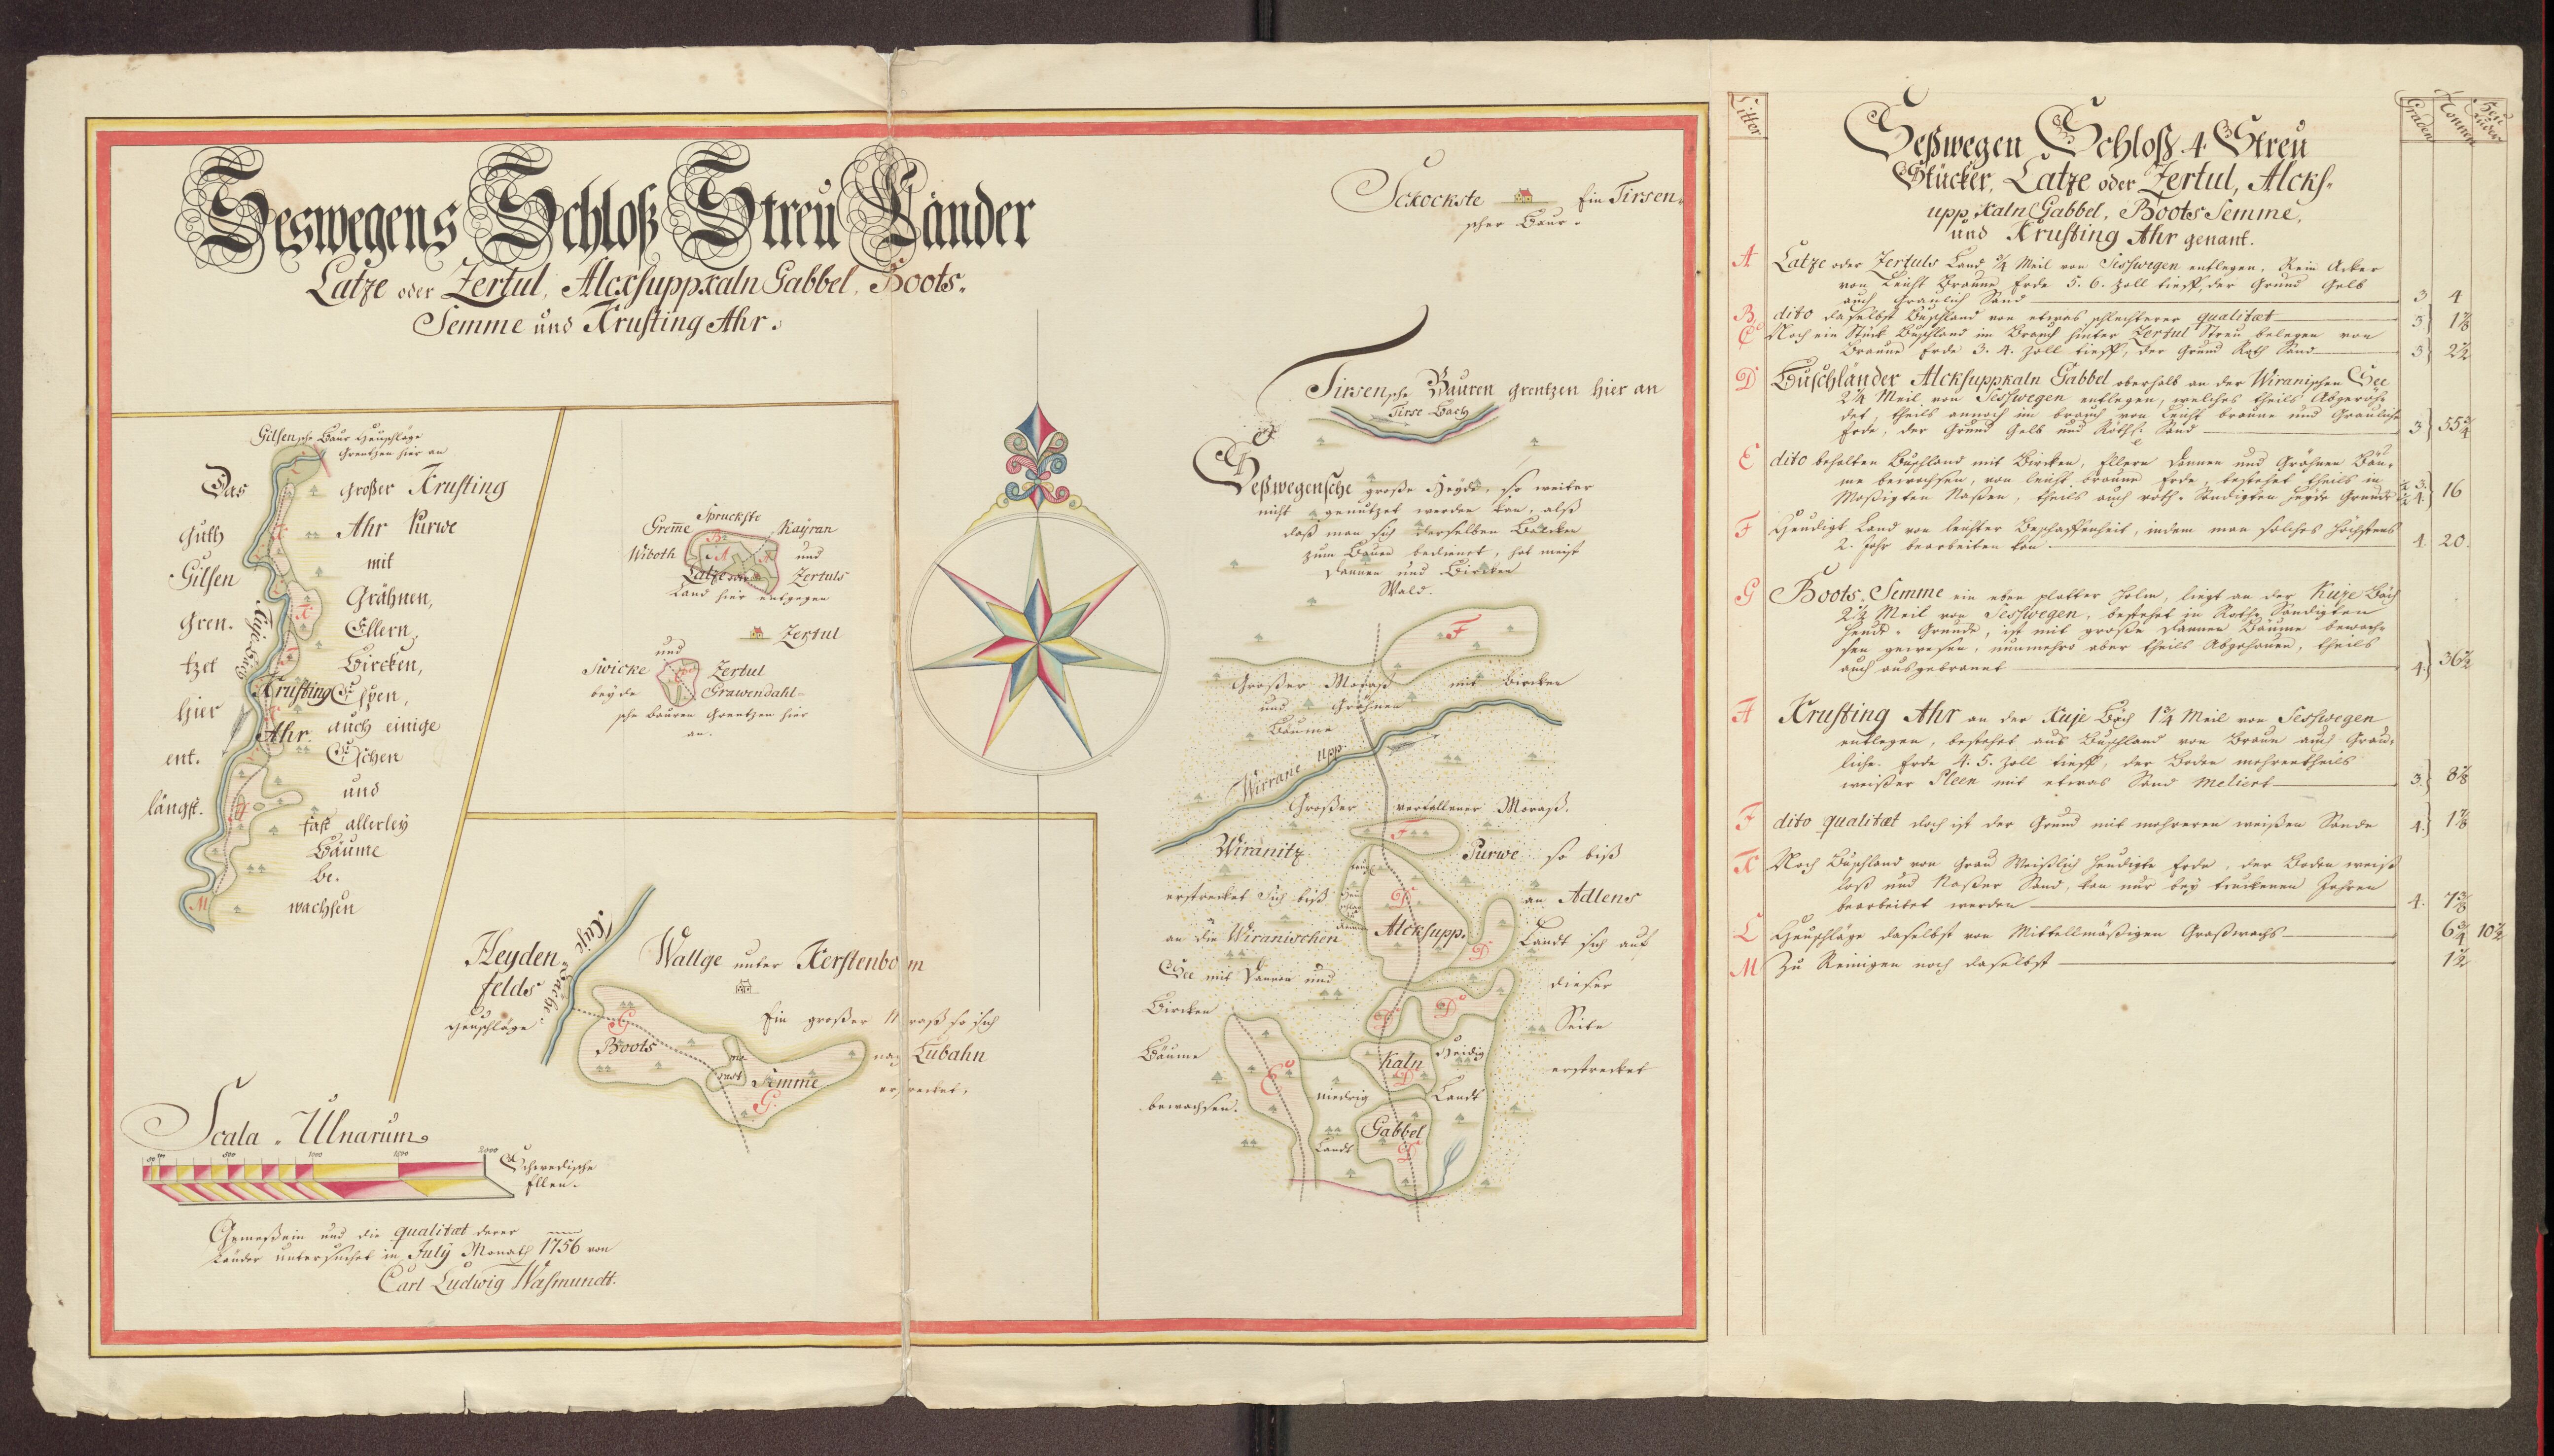 Seswegens Schloß Streu Länder
Latze oder Zertul, Alcksuppkaln Gabbel, Boots-
Semme und Krusting Ahr.
Sckockste ein Tirsen-
scher Baur.
Tirsensche Bauren grentzen hier an
Tirse Bach
Seßwegensche große Heyde, so weiter
nicht genutzet werden kan, alß
daß man sich derselben Balcken
zum Bauen bedienet, hat meist
Dannen und Bircken
Wald.
F
Großer Morast mit Bircken
und Grähnen
Bäume
Wirrane upp.
Großer verfallener Morast.
F
Wiranitz Purwe so biß
erstrecket sich biß an Adlens
an die Wiranischen Landt sich auf
See mit Dannen und dieser
Bircken Seite
Bäume erstrecket
bewachsen.
D
Alcksupp.
D
D
D
E
Kaln
D
Heidig
niedrig Landt
Gabbel
D
Landt
Gilsensche Baur Heuschläge
Grentzen hier an
Das großer Krusting
Guth Ahr Purwe
Gilsen mit
Gren- Grähnen,
tzet Ellern,
hier Bircken,
ent- Espen,
längst. auch einige
Eschen
und
fast allerley
Bäume
be-
wachsen
Kuje Bach
Krusting
Ahr.
M
Spruckste
Greme Kayran
Wiboth und
B
A
A
Latze oder Zertuls
Land hier entgegen
Zertul
und
Swicke Zertul
beyde Grawendahl-
sche Bauren Grentzen hier
an.
Heyden-
felds
Heuschläge
Kuje Bach
Wattge unter Kerstenbom
Ein großer Morast so sich
nach Lubahn
erstrecket.
G
Boots
Semme
G.
Scala Ulnarum
500 1000 1500 2000
Schwedische
Ellen.
Gemeßen und die qualitæt derer
Länder untersuchet in July Monath 1756 von
Carl Ludwig Wasmundt.
Litter
Graden
Tonnen
Heu Fuder
Seßwegen Schloß 4 Streu
Stücker, Latze oder Zertul, Alcks-
upp kaln Gabbel, Boots Semme,
und Krusting Ahr genant.
A Latze oder Zertuls Land ¾ Meil von Sesswegen entlegen. Rein Acker
von Leicht Braune Erde 5. 6. Zoll tieff, der Grund Gelb
auch Graulich Sand 3 4
B dito daselbst Buschland von etwas schlechterer qualitæt 3
C Noch ein Stück Buschland im Brauch hinter Zertul Streu belegen von
Braune Erde 3. 4. Zoll tieff, der Grund Roth Sand 3 2½
D Buschländer Alcksuppkaln Gabbel oberhalb an der Wiranischen See
2¼ Meil von Sesswegen entlegen, welches theils Abgeröh-
det, theils annoch im brauch von Leicht braune und Grauliche
Erde, der Grund Gelb und Röthl. Sand 3 55¾
E dito behalten Buschland mit Bircken, Ellern Dannen und Grähnen Bäu-
me bewachsen, von leicht braune Erde, bestehet theils in
Moßigten Naßen, theils auch roth Sandigten Heyde Grunde 16
F Heydigt Land von leichter Beschaffenheit, indem man solches höchstens
2. Jahr bearbeiten kan 4. 20.
G Boots Semme ein eben platter Holm, liegt an der Kuje Bäch
2½ Meil von Sesswegen, bestehet in Rothe Sandigten
Heyde Grunde, ist mit große Dannen Bäume bewach-
sen gewesen, nunmehro aber theils Abgehauen, theils
auch ausgebrannt 4. 36½
H Krusting Ahr an der Kuje Bäch 1¾ Meil von Sesswegen
entlegen, bestehet aus Buschland von Braun auch Grau-
liche Erde 4. 5. Zoll tieff, der Boden mehrentheils
weißer Pleen mit etwas Sand Meliert 3.
I dito qualitæt doch ist der Grund mit mehreren weißen Sande 4.
K Noch Buschland von Grau Weißlich Heydigte Erde, der Boden weiß
loß und Naßer Sand, kan nur bey truckenen Jahren
bearbeitet werden 4.
L Heuschläge daselbst von Mittellmäßigen Graßwachs 6¾ 10½
M Zu Reinigen noch daselbst 1½